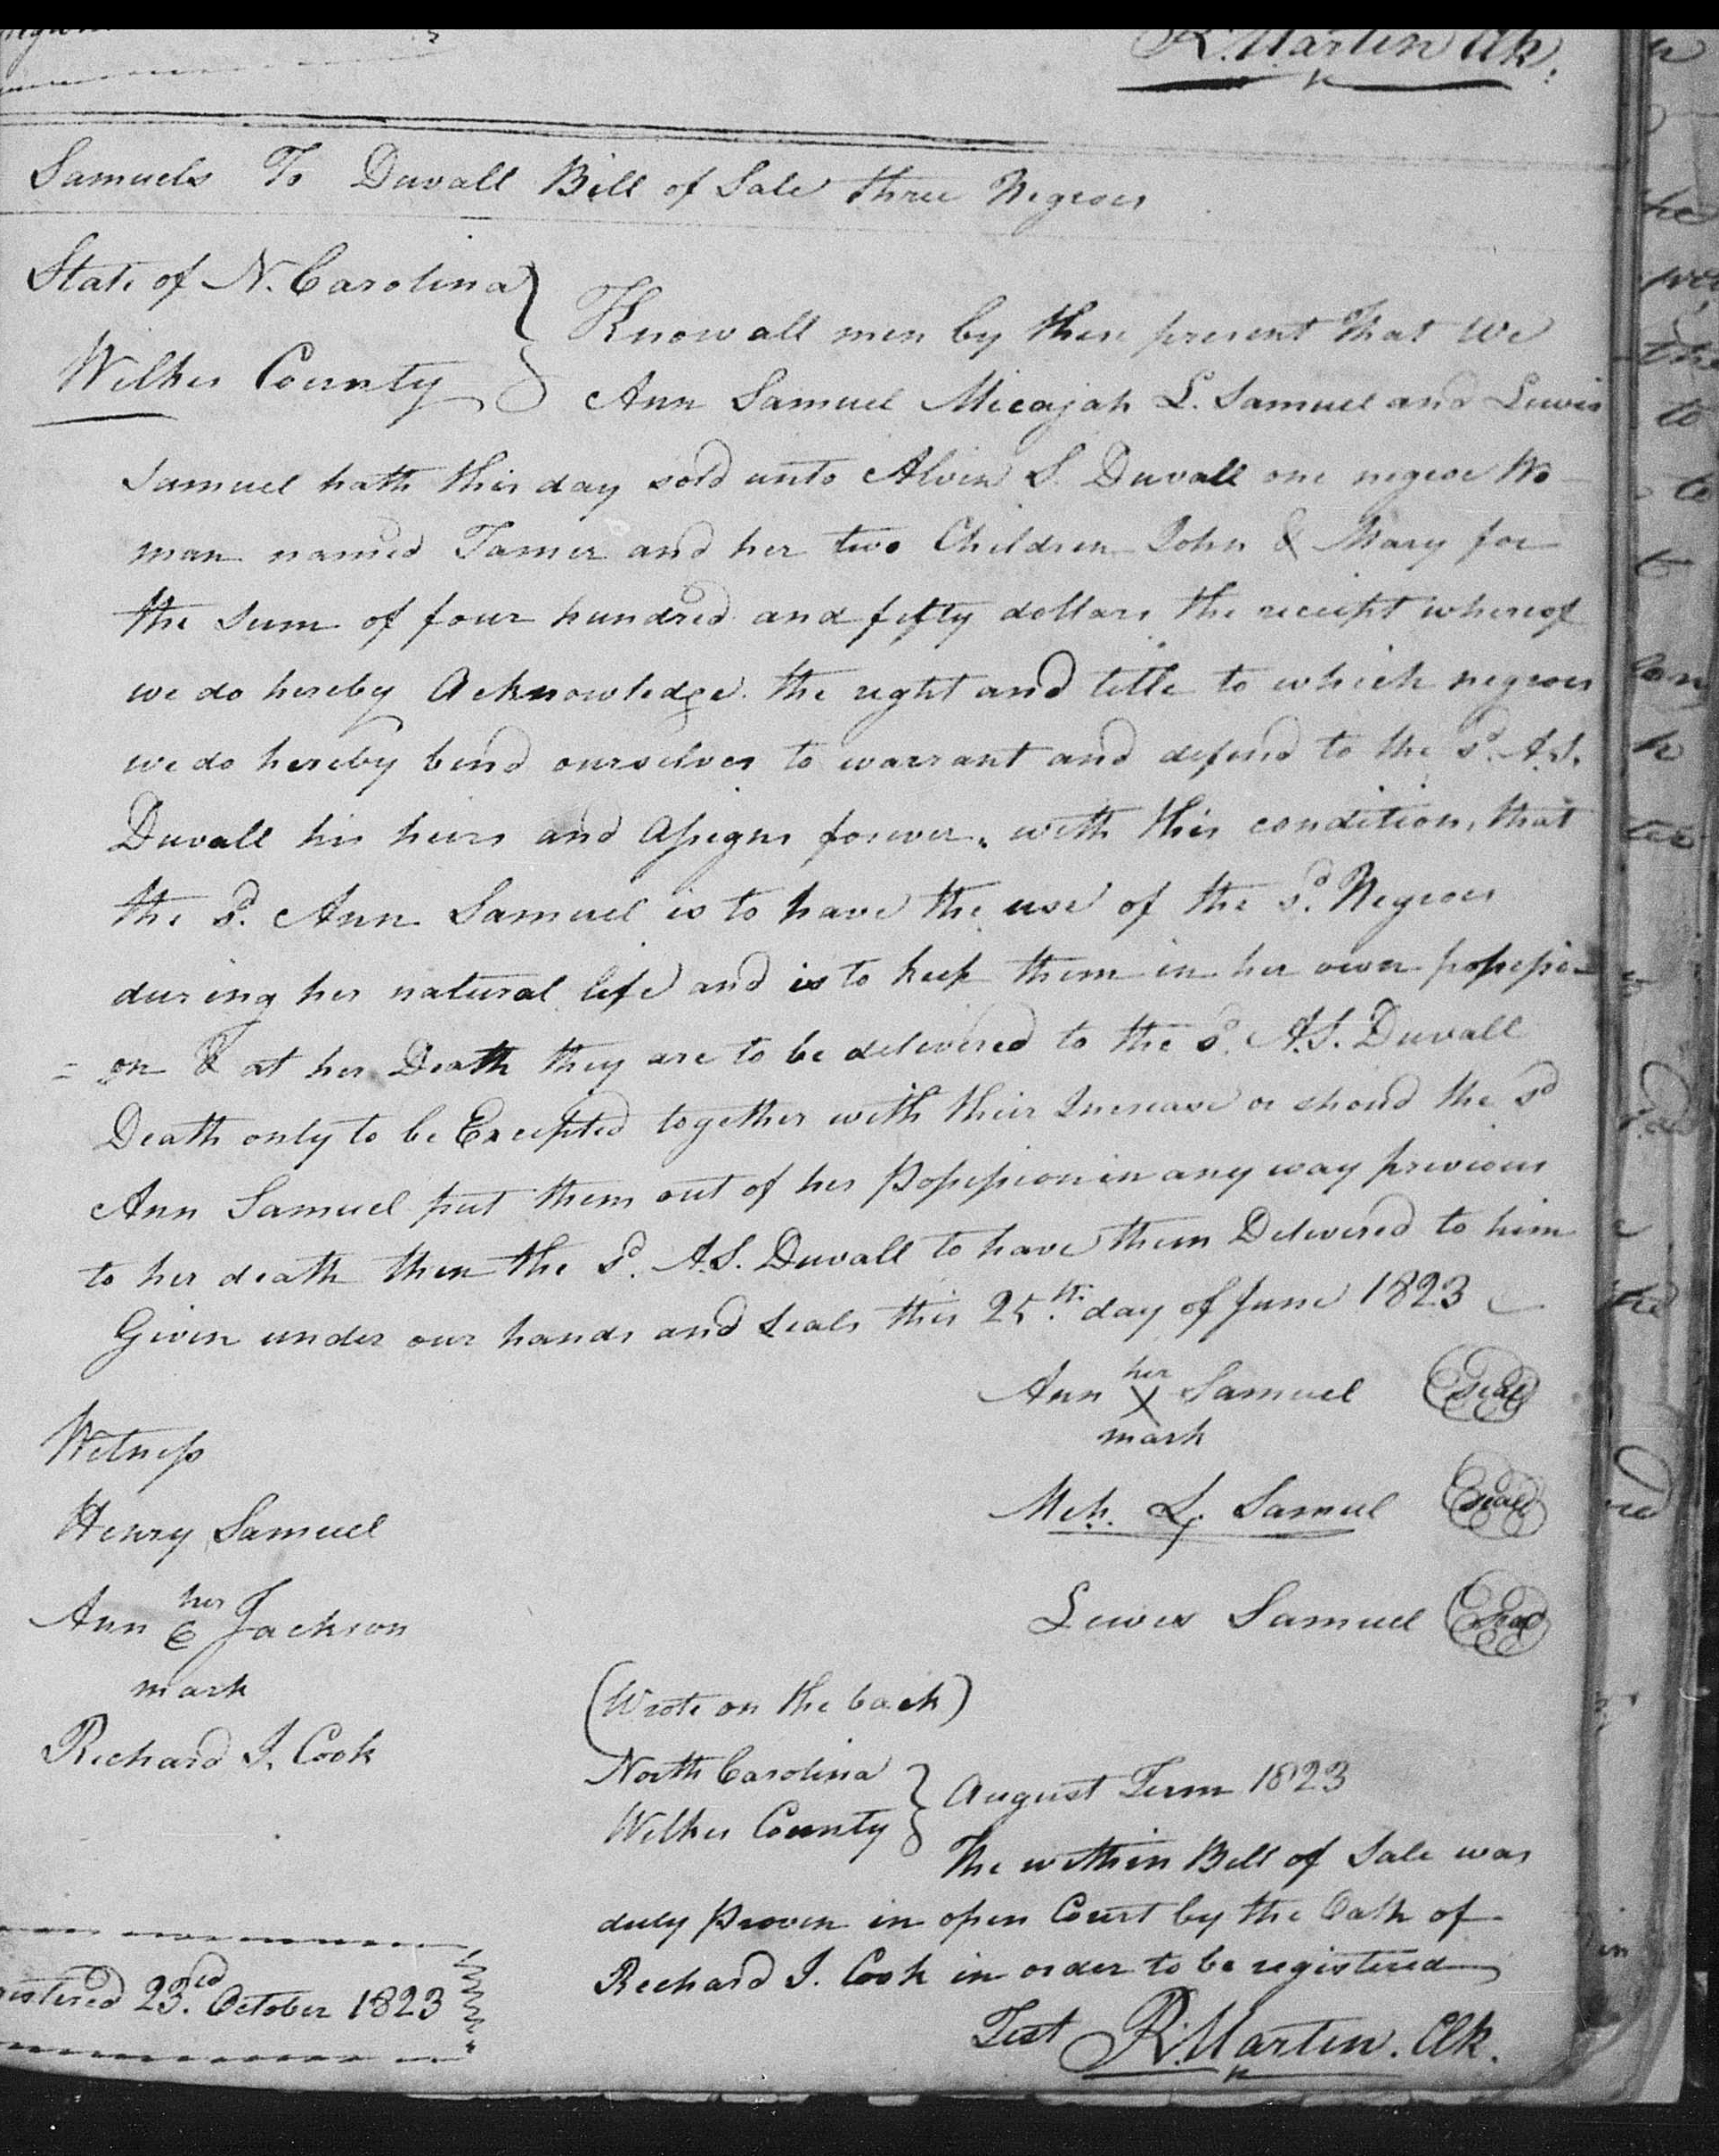 R. Martin Clk.
Samuels To Duvall Bill of Sale three Negroes
State of N. Carolina
Wilkes County
Know all men by these present that We
Ann Samuel Micajah L. Samuel and Lewis
Samuel hath this day sold unto Alvin S. Duvall one negroe Wo-
man named Tamer and her two Children John & Mary for
the sum of four hundred and fifty dollars the receipt whereof
we do hereby Acknowledge the right and title to which negroes
we do hereby bind ourselves to warrant and defend to the sd. A.S.
Duvall his heirs and Assigns forever, with this condition, that
the sd. Ann Samuel is to have the use of the sd. Negroes
during her natural life and is to keep them in her own possessi-
=on & at her Death they are to be delivered to the sd. A.S. Duvall
Death only to be Excepted together with their Increase or shoud the sd
Ann Samuel put them out of her Possession in any way previous
to her death then the sd. A.S. Duvall to have them Delivered to him
Given under our hands and Seals this 25th. day of June 1823
Ann her X mark Samuel seal
Witness
Mch. L. Samuel seal
Henry Samuel
Ann her mark Jackson
Lewis Samuel seal
Richard J. Cook
(Wrote on the back)
North Carolina
Wilkes County
August Term 1823
The within Bill of Sale was
duly Proven in open Court by the Oath of
Richard J. Cook in order to be registered
Test R. Martin. Clk.
gistered 23rd. October 1823